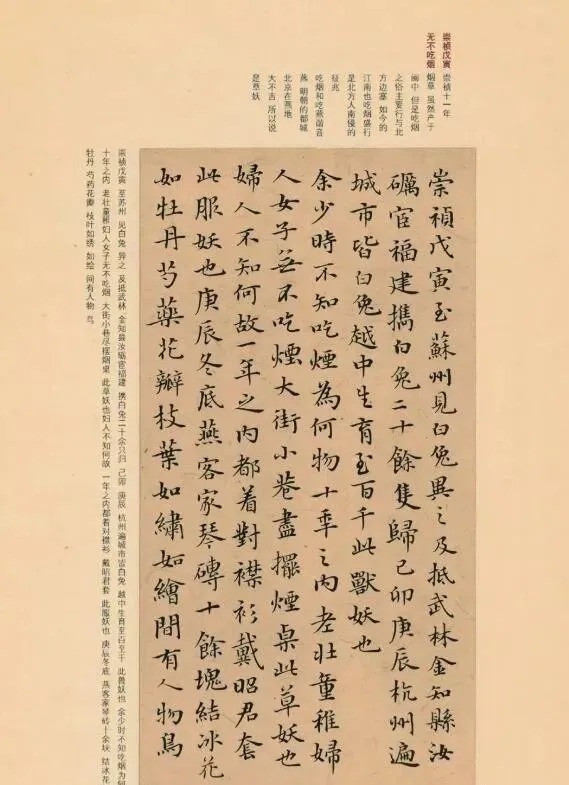 崇祯戊寅
无不吃烟
崇祯十一年
烟草 虽然产于
闽中 但是吃烟
之俗主要行与北
方边塞 如今的
江南也吃烟盛行
是北方人南侵的
征兆
吃烟和吃燕谐音
燕 明朝的都城
北京在燕地
大不吉 所以说
是草妖
崇禎戊寅至蘇州見白兔異之及抵武林金知縣汝
礪宦福建攜白兔二十餘隻歸己卯庚辰杭州遍
城市皆白兔越中生育至百千此獸妖也
余少時不知吃煙為何物十年之內老壯童稚婦
人女子無不吃煙大街小巷盡擺煙桌此草妖也
婦人不知何故一年之內都着對襟衫戴昭君套
此服妖也庚辰冬底燕客家琴磚十餘塊結冰花
如牡丹芍藥花瓣枝葉如繡如繪間有人物鳥
崇祯戊寅 至苏州 见白兔 异之 及抵武林 金知县汝砺宦福建 携白兔二十余只归 己卯 庚辰 杭州遍城市皆白兔 越中生育至百至千 此兽妖也 余少时不知吃烟为何
十年之内 老壮童稚妇人女子无不吃烟 大街小巷尽摆烟桌 此草妖也 妇人不知何故 一年之内都着对襟衫 戴昭君套 此服妖也 庚辰冬底 燕客家琴砖十余块 结冰花
牡丹 芍药花瓣 枝叶如绣 如绘 间有人物 鸟